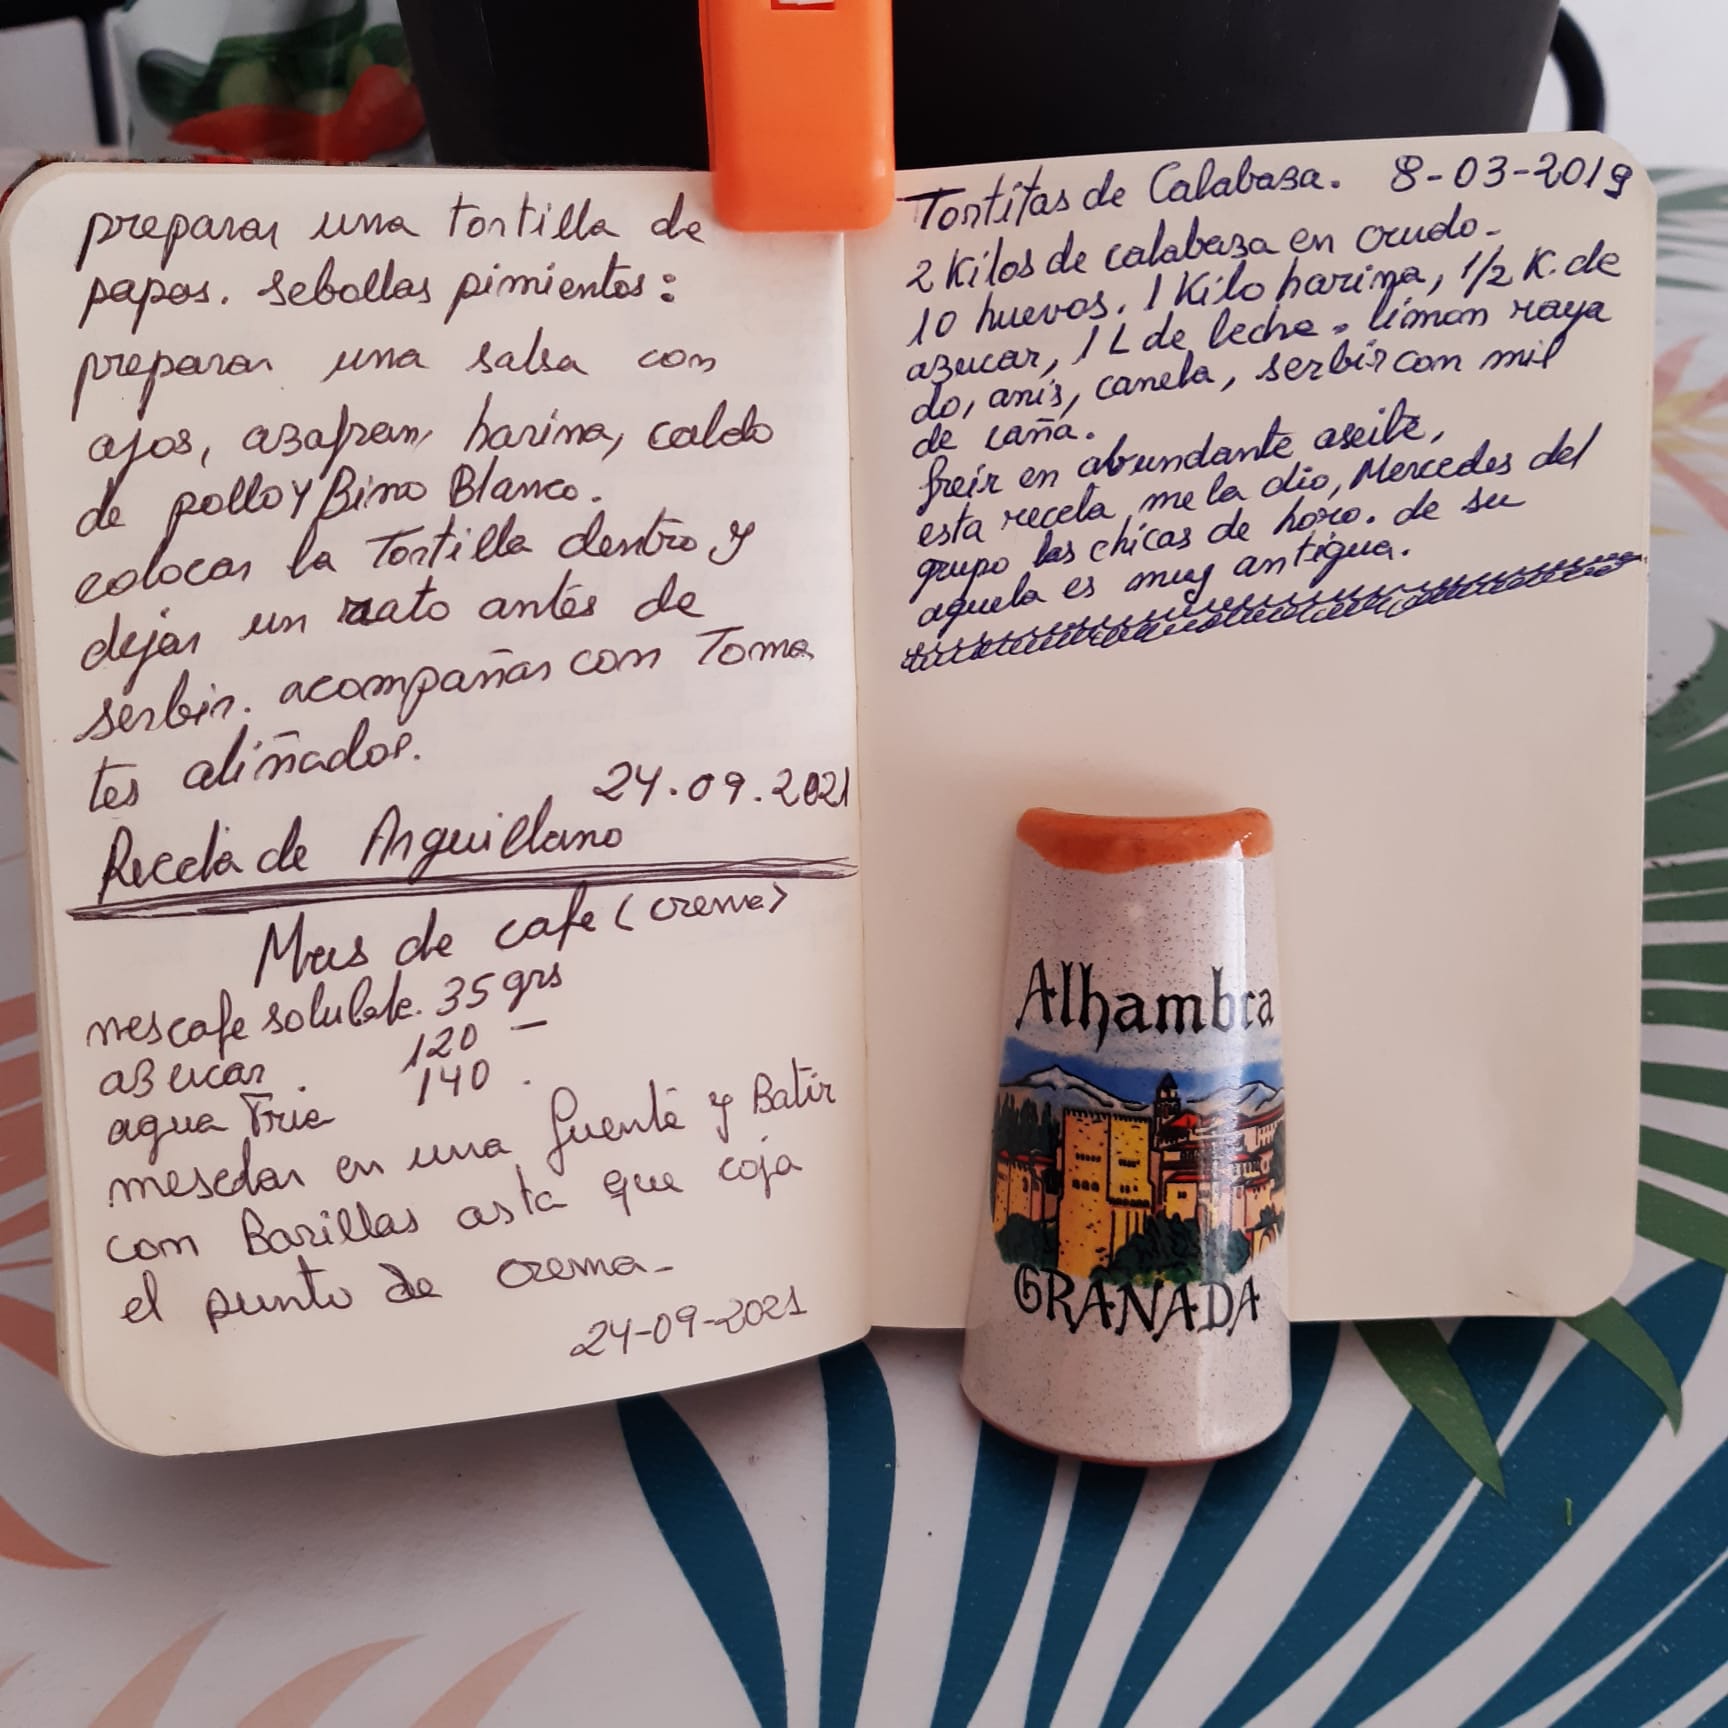 preparar una tortilla de
papas. sebollas pimientos:
preparar una salsa con
ajos, azafran, harina, caldo
de pollo y Bino Blanco.
colocar la Tortilla dentro y
dejar un rato antes de
serbir. acompañar con Toma
tes aliñados.
24.09.2021
Receta de Arguillano
Mus de cafe (crema)
nescafe soluble. 35 grs
azucar. 120 —
agua Fria 140.
mesclar en una fuente y Batir
con Barillas asta que coja
el punto de crema-
24-09-2021
Tortitas de Calabaza. 8-03-2019
2 Kilos de calabaza en crudo-
10 huevos. 1 Kilo harina, 1/2 K. de
azucar, 1 L de leche. limon raya
do, anis, canela, serbir con miel
de caña.
freir en abundante aseite,
esta receta me la dio, Mercedes del
grupo las chicas de horo. de su
aguela es muy antigua.
Alhambra
GRANADA